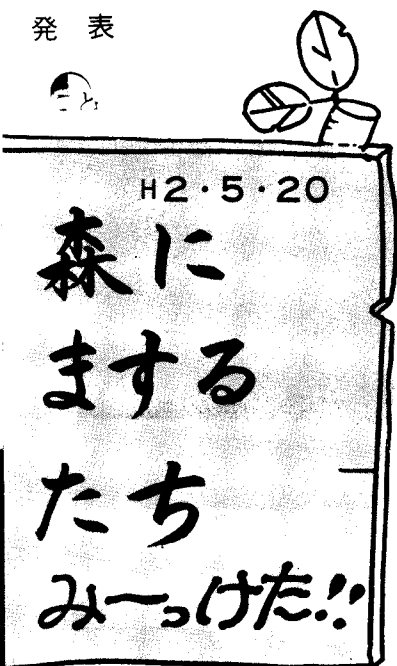 発表
H2・5・20
森に
まする
たち
みーっけた!!